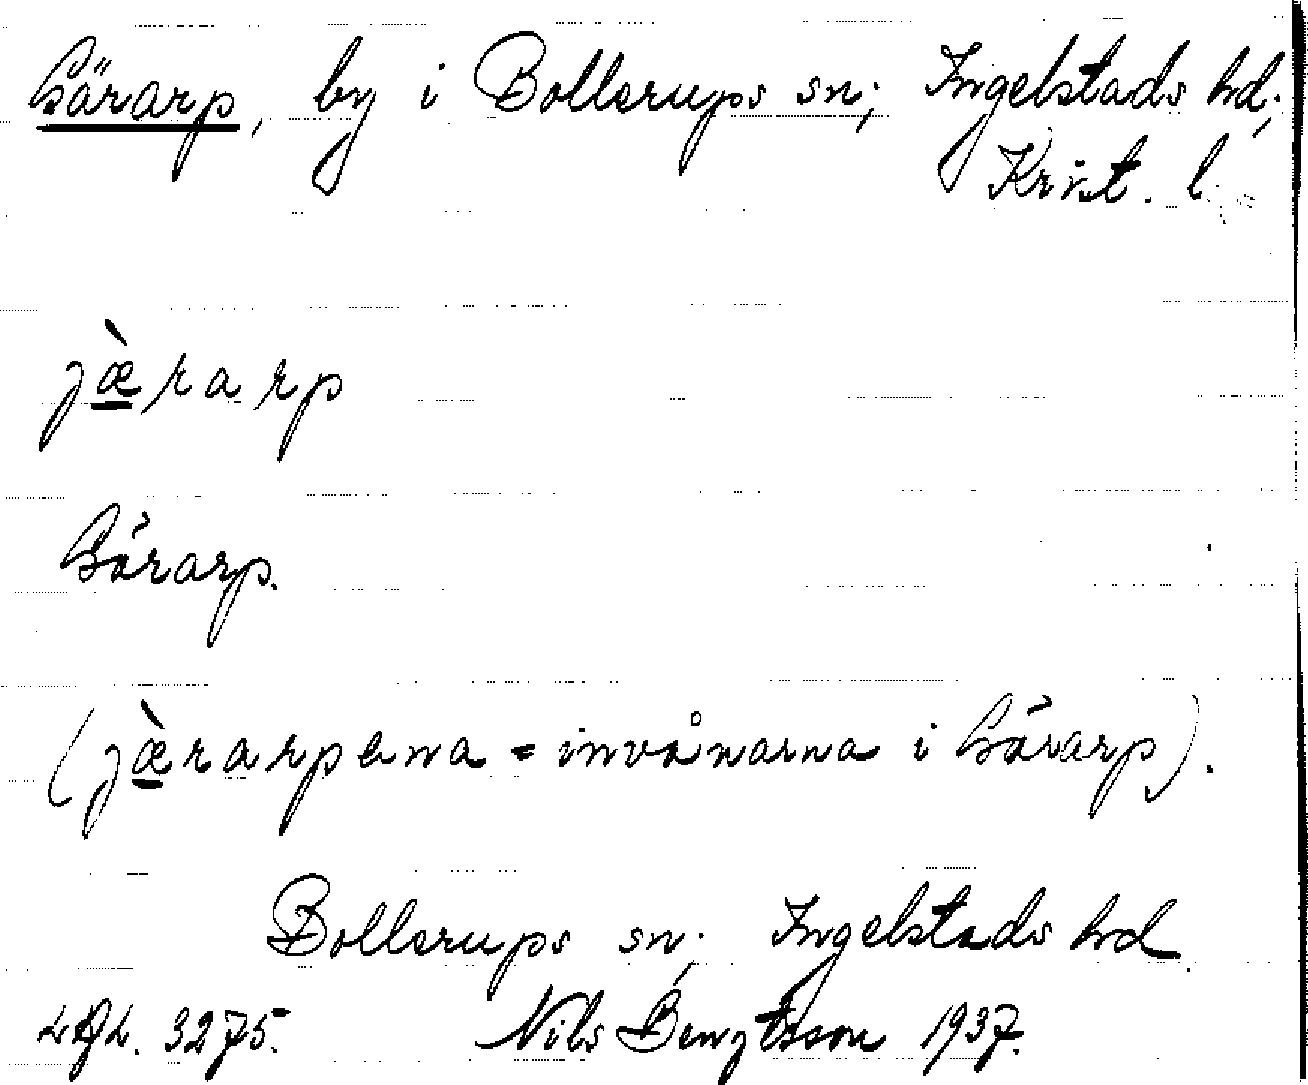 Gärarp, by i Bollerups sn; Ingelstads hd;
Krist. l.
jæ̀rarp
Gärarp.
(jæ̀rarpena = invånarna i Gärarp).
Bollerups sn; Ingelstads hd
LAL. 3275. Nils Bengtsson 1937.